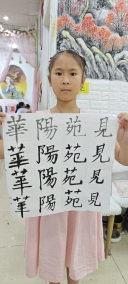 華 陽 苑 見
華 陽 苑 見
華 陽 苑 見
華 陽 苑 見